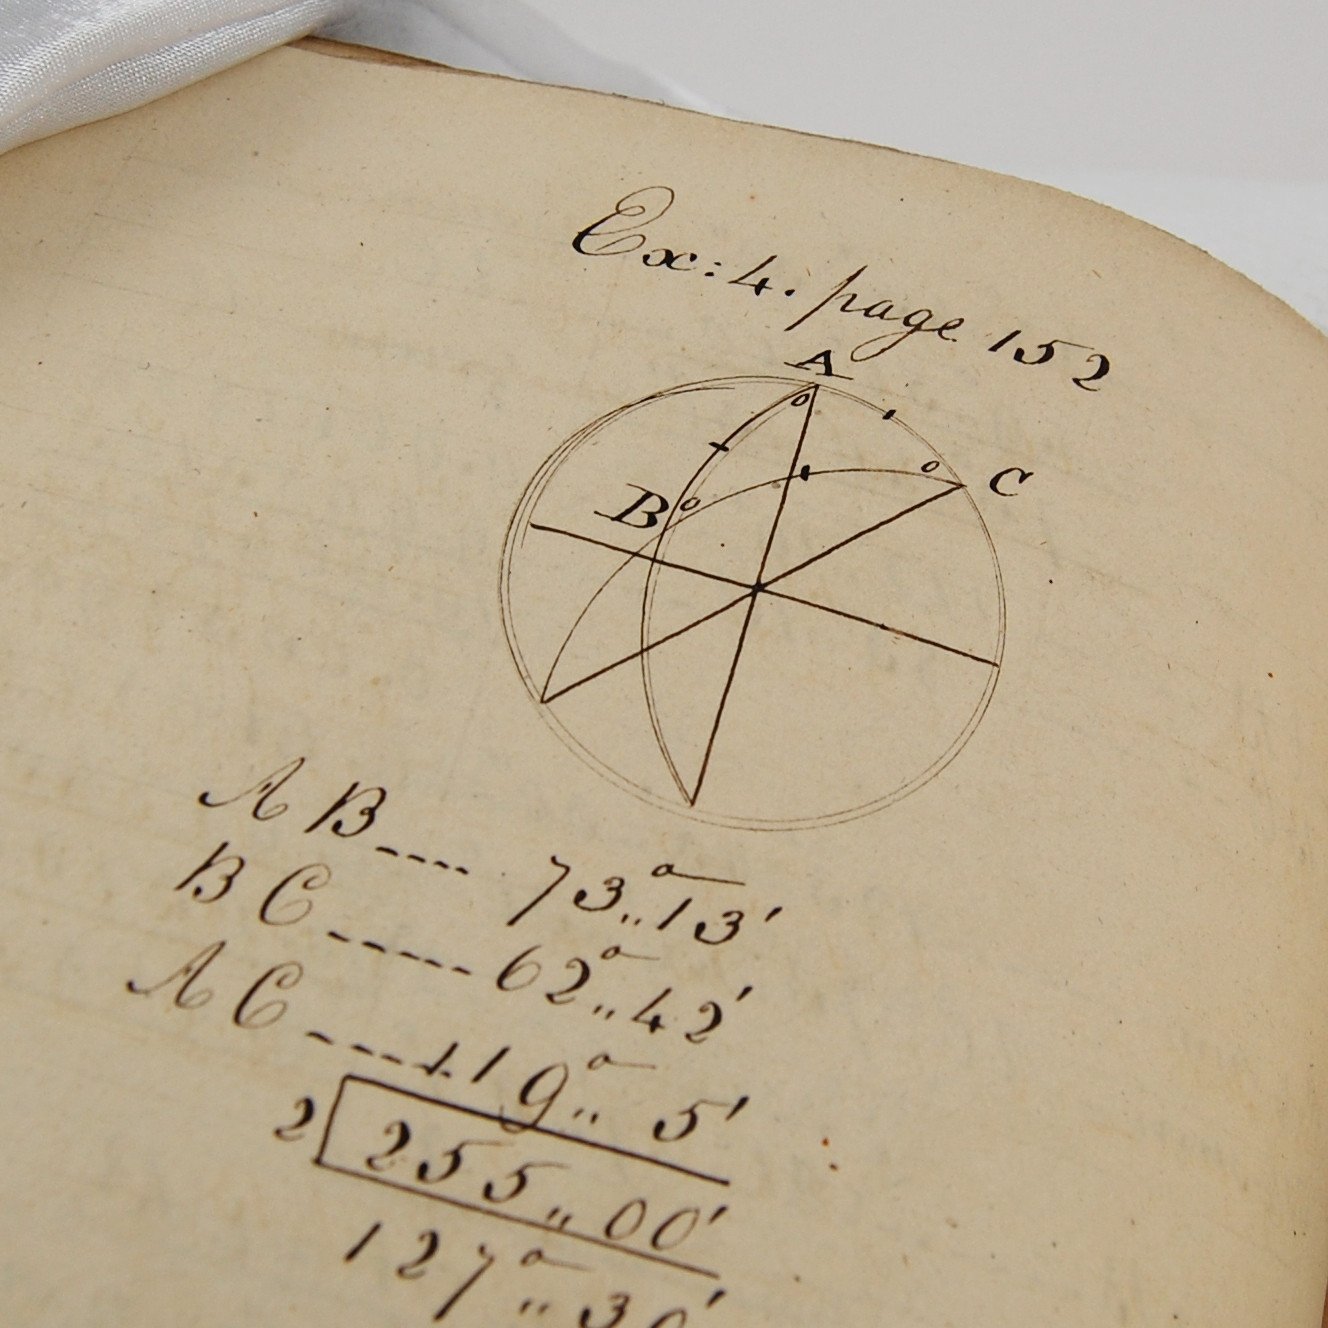 Ex: 4. page 152
A
C
B
AB---- 73°..13'
BC----- 62°..42'
AC-----119°.. 5'
2 255..00'
127°..30'